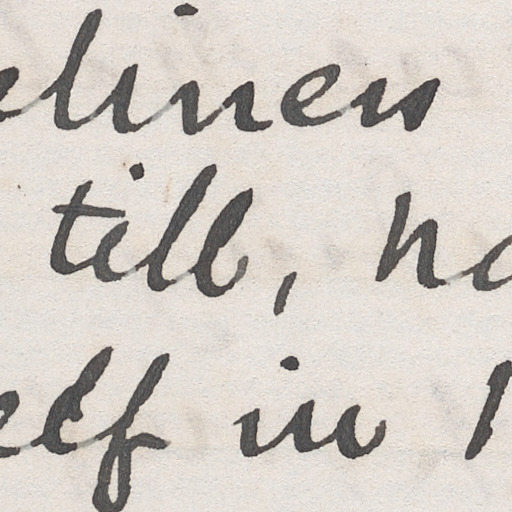 elines
till, no
elf in